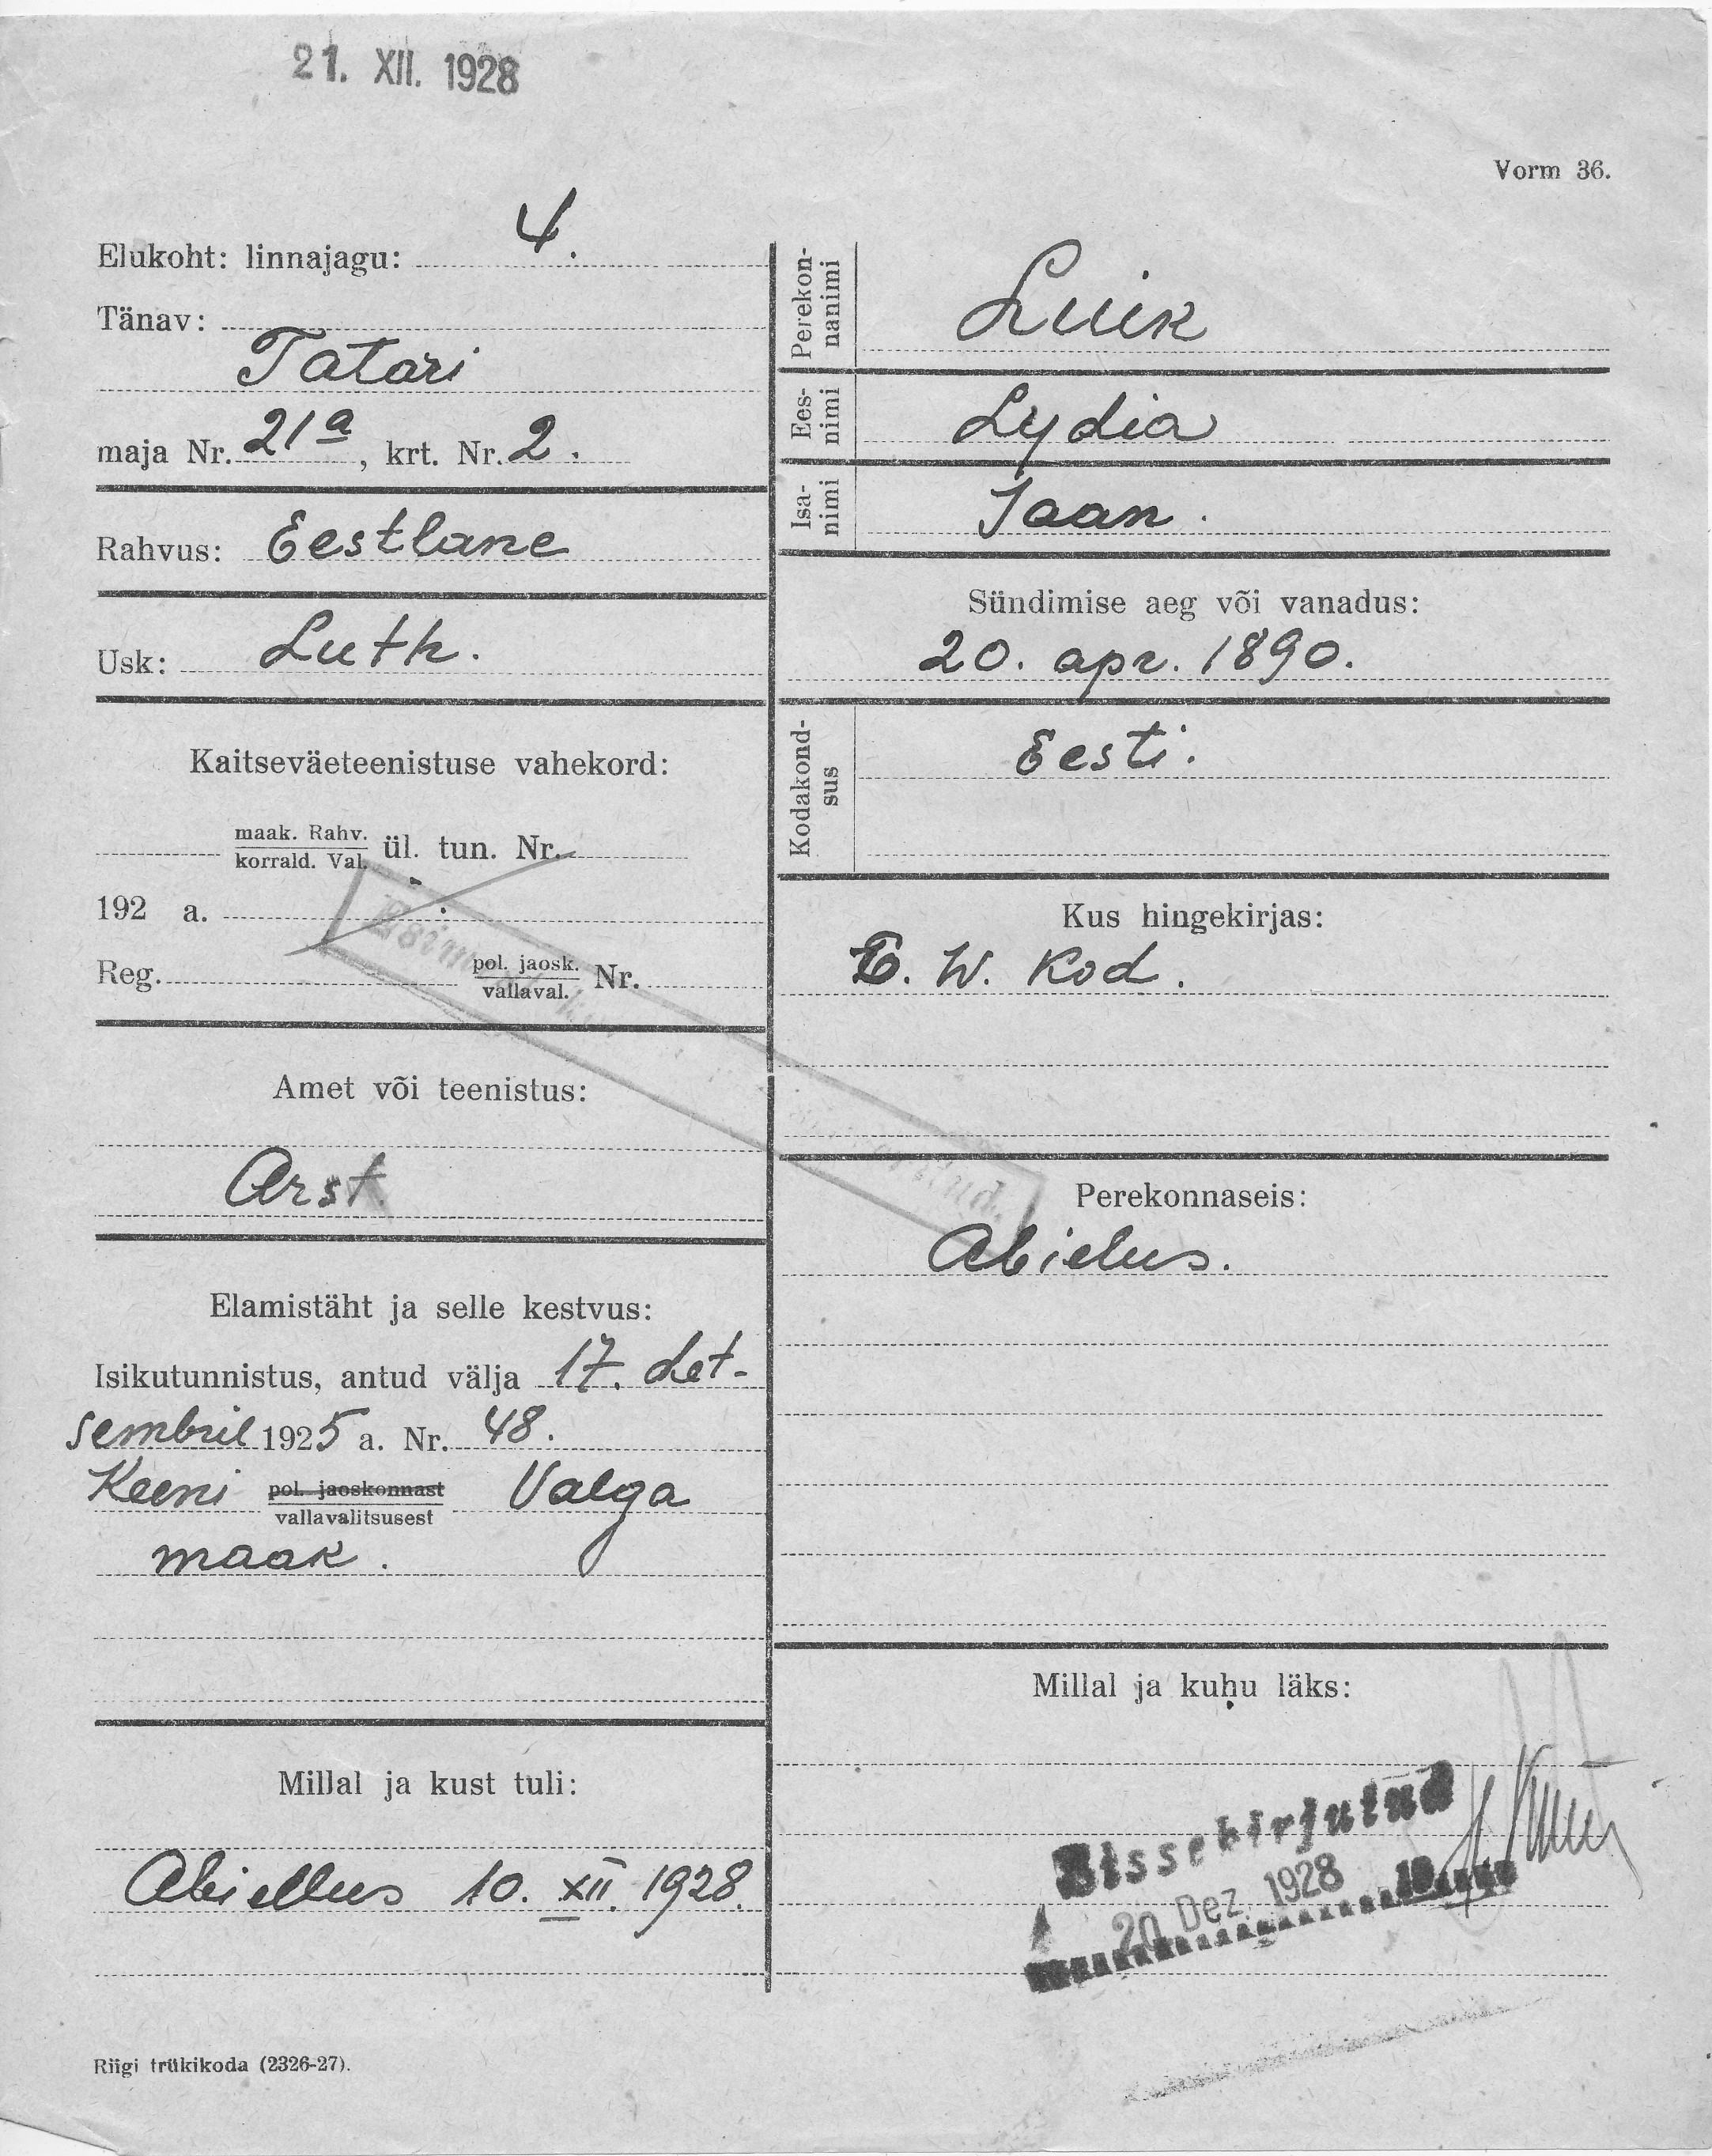 21. XII. 1928
Vorm 36.
Elukoht: linnajagu: 4.
Tänav:
Tatari
maja Nr. 21ª, krt. Nr. 2.
Rahvus: Eestlane
Usk: Luth.
Kaitseväeteenistuse vahekord:
maak. Rahv.
korrald. Val. ül. tun. Nr.
192 a.
Reg. pol. jaosk. Nr.
vallaval.
Amet või teenistus:
Arst
Elamistäht ja selle kestvus:
Isikutunnistus, antud välja 17. det-
sembril 1925 a. Nr. 48.
Keeni pol. jaoskonnast Valga
vallavalitsusest
maak.
Millal ja kust tuli:
Abiellus 10. XII. 1928.
Riigi trükikoda (2326-27).
Perekon-
nanimi
Luik
Ees-
nimi
Lydia
Isa-
nimi
Jaan.
Sündimise aeg või vanadus:
20. apr. 1890.
Kodakond-
sus
Eesti.
Kus hingekirjas:
E. W. Kod.
Perekonnaseis:
Abielus.
Millal ja kuhu läks:
Sissekirjutud
20 Dez. 1928